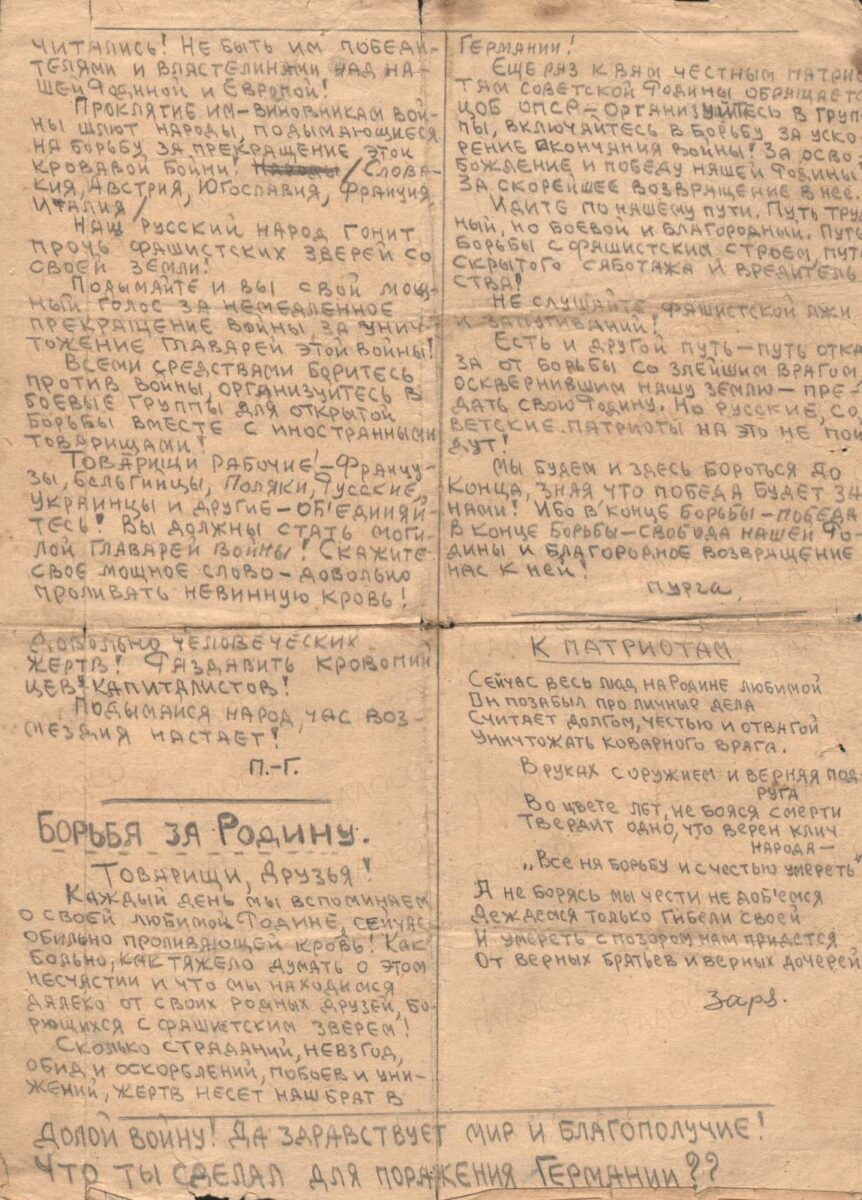 ЧИТАЛИСЬ! НЕ БЫТЬ ИМ ПОБЕДИ-
ТЕЛЯМИ И ВЛАСТЕЛИНАМИ НАД НА-
ШЕЙ РОДИНОЙ И ЕВРОПОЙ!
ПРОКЛЯТИЕ ИМ-ВИНОВНИКАМ ВОЙ-
НЫ ШЛЮТ НАРОДЫ, ПОДЫМАЮЩИЕСЯ
НА БОРЬБУ ЗА ПРЕКРАЩЕНИЕ ЭТОЙ
КРОВАВОЙ БОЙНИ! НАРОДЫ /СЛОВА-
КИЯ, АВСТРИЯ, ЮГОСЛАВИЯ, ФРАНЦИЯ,
ИТАЛИЯ/
НАШ РУССКИЙ НАРОД ГОНИТ
ПРОЧЬ ФАШИСТСКИХ ЗВЕРЕЙ СО
СВОЕЙ ЗЕМЛИ!
ПОДЫМАЙТЕ И ВЫ СВОЙ МОЩ-
НЫЙ ГОЛОС ЗА НЕМЕДЛЕННОЕ
ПРЕКРАЩЕНИЕ ВОЙНЫ, ЗА УНИЧ-
ТОЖЕНИЕ ГЛАВАРЕЙ ЭТОЙ ВОЙНЫ!
ВСЕМИ СРЕДСТВАМИ БОРИТЕСЬ
ПРОТИВ ВОЙНЫ, ОРГАНИЗУЙТЕСЬ В
БОЕВЫЕ ГРУППЫ ДЛЯ ОТКРЫТОЙ
БОРЬБЫ ВМЕСТЕ С ИНОСТРАННЫМИ
ТОВАРИЩАМИ!
ТОВАРИЩИ РАБОЧИЕ!-ФРАНЦУ-
ЗЫ, БЕЛЬГИЙЦЫ, ПОЛЯКИ, РУССКИЕ,
УКРАИНЦЫ И ДРУГИЕ-ОБ'ЕДИНЯЙ-
ТЕСЬ! ВЫ ДОЛЖНЫ СТАТЬ МОГИ-
ЛОЙ ГЛАВАРЕЙ ВОЙНЫ! СКАЖИТЕ
СВОЕ МОЩНОЕ СЛОВО-ДОВОЛЬНО
ПРОЛИВАТЬ НЕВИННУЮ КРОВЬ!
ДОВОЛЬНО ЧЕЛОВЕЧЕСКИХ
ЖЕРТВ! РАЗДАВИТЬ КРОВОПИЙ
ЦЕВ-КАПИТАЛИСТОВ!
ПОДЫМАЙСЯ НАРОД, ЧАС ВОЗ-
МЕЗДИЯ НАСТАЕТ!
П.-Г.
БОРЬБА ЗА РОДИНУ.
ТОВАРИЩИ, ДРУЗЬЯ!
КАЖДЫЙ ДЕНЬ МЫ ВСПОМИНАЕМ
О СВОЕЙ ЛЮБИМОЙ РОДИНЕ, СЕЙЧАС
ОБИЛЬНО ПРОЛИВАЮЩЕЙ КРОВЬ! КАК
БОЛЬНО, КАК ТЯЖЕЛО ДУМАТЬ О ЭТОМ
НЕСЧАСТИИ И ЧТО МЫ НАХОДИМСЯ
ДАЛЕКО ОТ СВОИХ РОДНЫХ ДРУЗЕЙ, БО-
РЮЩИХСЯ С ФАШИСТСКИМ ЗВЕРЕМ!
СКОЛЬКО СТРАДАНИЙ, НЕВЗГОД,
ОБИД И ОСКОРБЛЕНИЙ, ПОБОЕВ И УНИ-
ЖЕНИЙ, ЖЕРТВ НЕСЕТ НАШ БРАТ В
ГЕРМАНИИ!
ЕЩЕ РАЗ К ВАМ ЧЕСТНЫМ ПАТРИО
ТАМ СОВЕТСКОЙ РОДИНЫ ОБРАЩАЕТС
ЦОБ ОПСР-ОРГАНИЗУЙТЕСЬ В ГРУП
ПЫ, ВКЛЮЧАЙТЕСЬ В БОРЬБУ ЗА УСКО-
РЕНИЕ ОКОНЧАНИЯ ВОЙНЫ! ЗА ОСВО
БОЖДЕНИЕ И ПОБЕДУ НАШЕЙ РОДИНЫ!
ЗА СКОРЕЙШЕЕ ВОЗВРАЩЕНИЕ В НЕЕ.
ИДИТЕ ПО НАШЕМУ ПУТИ. ПУТЬ ТРУ
НЫЙ, НО БОЕВОЙ И БЛАГОРОДНЫЙ. ПУТЬ
БОРЬБЫ С ФАШИСТСКИМ СТРОЕМ, ПУТЬ
СКРЫТОГО САБОТАЖА И ВРЕДИТЕЛЬ
СТВА!
НЕ СЛУШАЙТЕ ФАШИСТСКОЙ ЛЖИ
И ЗАПУГИВАНИЙ!
ЕСТЬ И ДРУГОЙ ПУТЬ-ПУТЬ ОТКА
ЗА ОТ БОРЬБЫ СО ЗЛЕЙШИМ ВРАГОМ,
ОСКВЕРНИВШИМ НАШУ ЗЕМЛЮ-ПРЕ-
ДАТЬ СВОЮ РОДИНУ. НО РУССКИЕ, СО
ВЕТСКИЕ ПАТРИОТЫ НА ЭТО НЕ ПОЙ
ДУТ!
МЫ БУДЕМ И ЗДЕСЬ БОРОТЬСЯ ДО
КОНЦА, ЗНАЯ ЧТО ПОБЕДА БУДЕТ ЗА
НАМИ! ИБО В КОНЦЕ БОРЬБЫ-ПОБЕДА
В КОНЦЕ БОРЬБЫ-СВОБОДА НАШЕЙ РО-
ДИНЫ И БЛАГОРОДНОЕ ВОЗВРАЩЕНИЕ
НАС К НЕЙ!
ПУРГА.
К ПАТРИОТАМ
СЕЙЧАС ВЕСЬ ЛЮД НА РОДИНЕ ЛЮБИМОЙ
ОН ПОЗАБЫЛ ПРО ЛИЧНЫЕ ДЕЛА
СЧИТАЕТ ДОЛГОМ, ЧЕСТЬЮ И ОТВАГОЙ
УНИЧТОЖАТЬ КОВАРНОГО ВРАГА.
В РУКАХ С ОРУЖИЕМ И ВЕРНАЯ ПОД-
РУГА
ВО ЦВЕТЕ ЛЕТ, НЕ БОЯСЯ СМЕРТИ
ТВЕРДИТ ОДНО, ЧТО ВЕРЕН КЛИЧ
НАРОДА-
„ВСЕ НА БОРЬБУ И С ЧЕСТЬЮ УМЕРЕТЬ"
А НЕ БОРЯСЬ МЫ ЧЕСТИ НЕ ДОБ'ЕМСЯ
ДЕЖДЕМСЯ ТОЛЬКО ГИБЕЛИ СВОЕЙ
И УМЕРЕТЬ С ПОЗОРОМ НАМ ПРИДЕТСЯ
ОТ ВЕРНЫХ БРАТЬЕВ И ВЕРНЫХ ДОЧЕРЕЙ
Заря.
ДОЛОЙ ВОЙНУ! ДА ЗДРАВСТВУЕТ МИР И БЛАГОПОЛУЧИЕ!
ЧТО ТЫ СДЕЛАЛ ДЛЯ ПОРАЖЕНИЯ ГЕРМАНИИ??